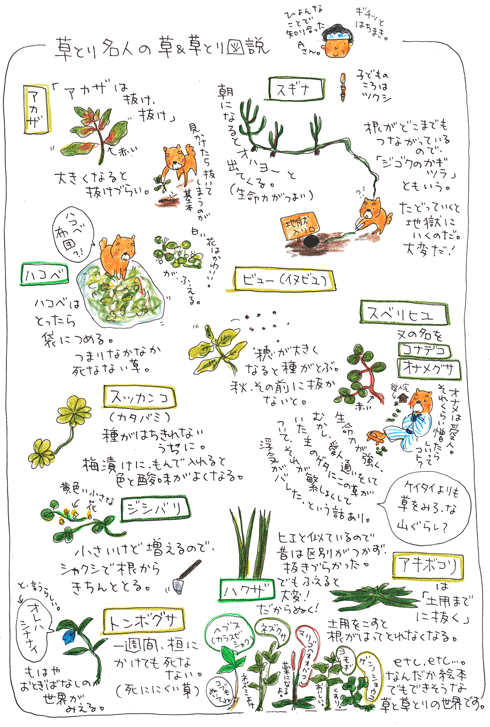 草とり名人の草&草とり図説
ひょんな
ことで
知り合った
Aさん。
ギチッと
はちまき。
アカザ
「アカザは
抜け、
抜け」
赤い
大きくなると
抜けづらい。
見かけたら抜いて
しまうのが
基本
スギナ
子どもの
ころは
ツクシ
朝になると
オハヨーと
出てくる。
(生命力がつよい)
根がどこまでも
つながっている
ので、
「ジゴクのかぎ
ヅラ」
ともいう。
たどっていくと
地獄に
いくのだ。
大変だ!
地獄
入り口
?!
ハコベ
ハコベ
布団?!
白い花はかわいい
が、ふえる。
ハコベは
とったら
袋につめる。
つまりなかなか
死なない草。
ビュー(イヌビユ)
穂が大きく
なると種がとぶ。
秋、その前に抜か
ないと。
スベリヒユ
又の名を
コナデコ
オナメグサ
赤い
オナメは愛人。
それくらい憎たら
しいって
コトら
愛人宅
生命力が強く、
むかし、愛人通いをして
いた主のゲタにこの草が
ついて、それが繁茂しまして
浮気がバレた、という話あり。
ケイタイよりも
草をみろ、な
山ぐらし?
スッカンコ
(カタバミ)
種がはちきれない
うちに。
梅漬けに、もんで入れると
色と酸味がよくなる。
ジシバリ
黄色い小さな
花
小さいけど増えるので、
シャクシで根から
きちんととる。
ハクサ
ヒエと似ているので
昔は区別がつかず、
抜きづらかった。
でもふえると
大変!
だからぬく!
アキボコリ
は
「土用まで
に抜く」
土用をこのと
根がはってとれなくなる。
トンボグサ
と、言うらしい。
オレハ
シナナイ
一週間、垣に
かけても死な
ない。
(死ににくい草)
もはや
おとぎばなしの
世界が
みえる。
ヘブス
(カラスビシャク)
ネズクサ
ヨモギ
ゲンノショウコ
etc, etc…。
なんだか絵本
でもできそうな
草と草とりの世界です。